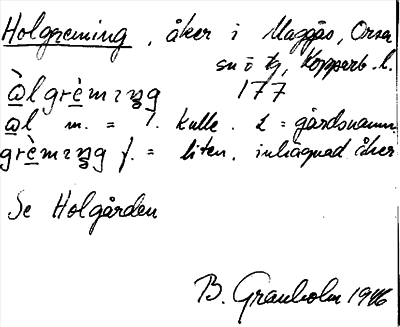 Holgreming, åker i Maggås, Orsa
sn o tg, Kopparb. l.
àl grèmıŋg 177
al m. = 1. kulle. 2 = gårdsnamn
grèmıŋg f. = liten, inhägnad åker
Se Holgården
B. Granholm 1946